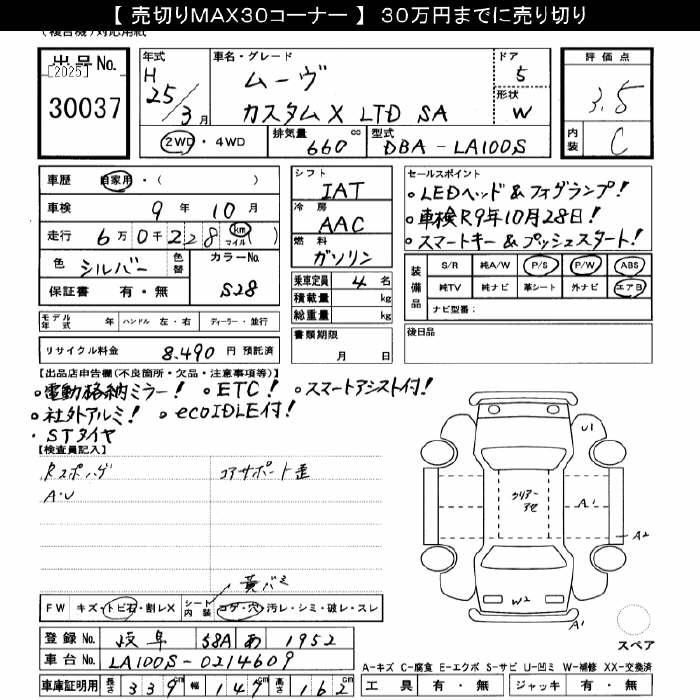 【 売切りMAX30コーナー 】 30万円までに売り切り
出品No. [2025] 30037
年式 H 25/3月
車名・グレード ムーヴ カスタム X LTD SA
ドア 5
形状 W
評価点 3.5
内装 C
2WD・4WD
排気量 660 cc
型式 DBA - LA100S
車歴 自家用・( )
車検 9年 10月
走行 6万0千228 km マイル ( )
色 シルバー 色替
カラーNo. S28
保証書 有・無
シフト IAT
冷房 AAC
燃料 ガソリン
乗車定員 4名
積載量 kg
総重量 kg
セールスポイント
。LEDヘッド&フォグランプ!
。車検R9年10月28日!
。スマートキー&プッシュスタート!
装備品 S/R 純A/W P/S P/W ABS
純TV 純ナビ 革シート 外ナビ エアB
ナビ型番:
モデル年式 年 ハンドル 左・右 ディーラー・並行
リサイクル料金 8.490 円 預託済
書類期限 月 日
後日品
【出品店申告欄(不良箇所・欠品・注意事項等)】
。電動格納ミラー! 。ETC! 。スマートアシスト付!
。社外アルミ! 。ecoIDLE付!
・STタイヤ
【検査員記入】
コアサポート歪
A・U
U1
クリアーアセ
A1
A2
W2
A1
黄バミ
FW キズ・トビ石・割レX
シート内装 コゲ・穴・汚レ・シミ・破レ・スレ
スペア
登録No. 岐阜 58A あ 1952
車台No. LA100S-0214609
車庫証明用 長さ 339cm 幅 147cm 高さ 162cm
A-キズ C-腐食 E-エクボ S-サビ U-凹ミ W-補修 XX-交換済
工具 有・無 ジャッキ 有・無